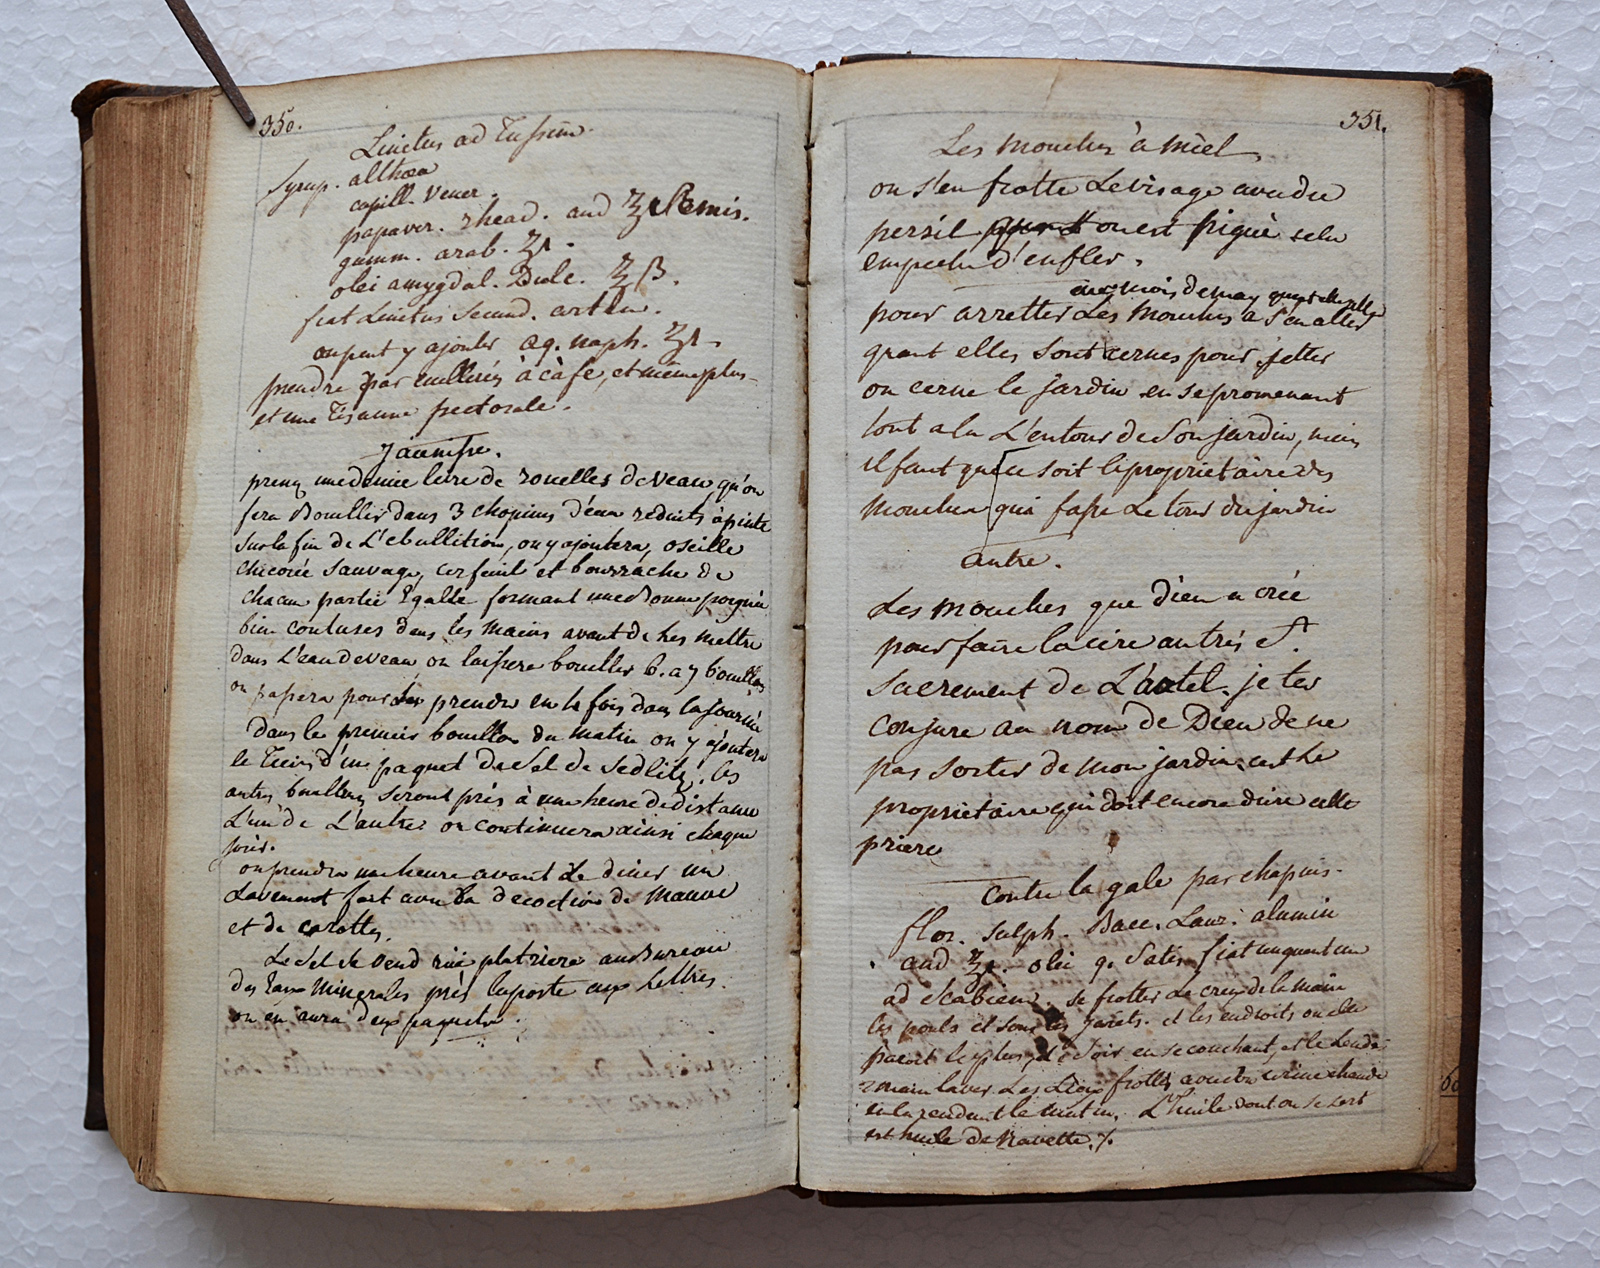 350.
Linctus ad Tussim.
Syrup. althæa
capill. Vener.
papaver. rhead. and ʒ semis.
gumm. arab. ʒ1.
olei amygdal. Dulc. ʒ β.
fiat Linctus Secund. artem.
on peut y ajouter aq. naph. ʒ1.
prendre par cuillerées à càfé, et même plus
et une Tisanne pectorale.
Jaunisse.
prenez une demie livre de rouelles de Veau, qu'on
fera Bouillir dans 3 chopines d'eau reduits à pinte
sur la fin de L'ebullition, on y ajoutera, oseille
chicorée Sauvage, cerfeuil et bourrache de
chacun partie Egalle formant une Bonne poignée
bien contuses dans les mains avant de les mettre
dans L'eau de veau, on laissera bouillir 6. a 7 bouillons
on passera pour prendre en 4 fois dans la journée
Dans le premier bouillon du matin on y ajoutera
le Tiers d'un paquet De Sel de Sedlitz. les
autres bouillons seront pris à une heure de distance
L'un de L'autre on continuera ainsi chaque
jour.
on prendra une heure avant de diner un
Lavement fait avec la decoction de Mauve
et de carottes.
Le Sel se Vend rue platriere au Bureau
des Eaux Minerales près la poste aux Lettres.
on en aura deux paquets.
351.
Les Mouches à Mièl
on s'en frotte Le visage avec du
persil on est piqué cela
empeche d'enfler.
au Mois de may quant elle
pour arretter Les Mouches a S'en aller
quant elles Sont cernes pour jetter
on cerne le jardin en se promenant
tout a la L'entour de Son jardin, mais
il faut que ce soit le proprietaire des
Mouches qui fasse Le tour du jardin
autre.
Les Mouches que dieu a crée
pour faire la cire au très St.
Sacrement de L'autel. je te
conjure au nom de Dieu de ne
pas Sortir de Mon jardin, cest Le
proprietaire qui doit encore dire cette
priere
Contre la gale par chapuis.
flor. Sulph. Bacc. Laur. alumin
and ʒ1. olei q. Satis fiat unguentum
ad Scabiem. se frotter Le creux de la main
les pouls et sous les jarets. et les endroits ou elle
paroit le plus, le Soir en se couchant, et le Lende-
main laver Les Lieux frottés avec urine chaude
en la rendant le matin. L'huile dont on se sert
est huile de Navette. %